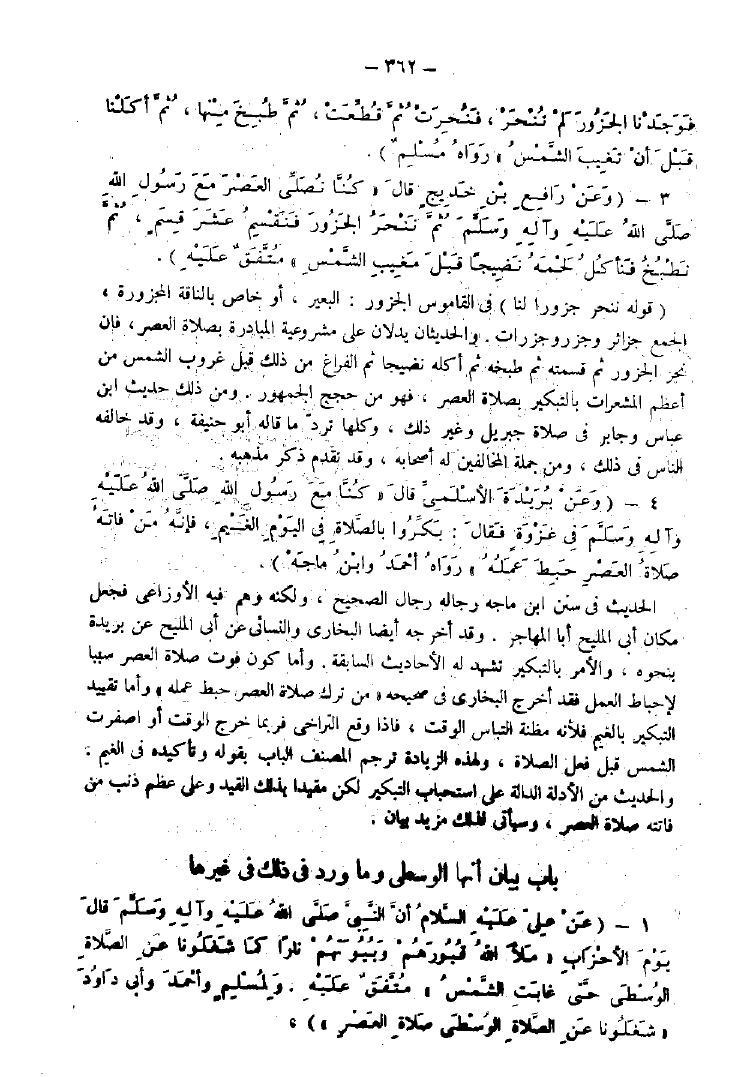 – ٣٦٢ –
فَوَجَدْنا الجَزُورَ لَمْ تُنْحَرْ ، فَنُحِرَتْ ثُمَّ قُطِّعَتْ ، ثُمَّ طُبِخَ مِنْها ، ثُمَّ أكَلْنا
قَبْلَ أنْ تَغِيبَ الشَّمْسُ » رَوَاهُ مُسْلِمٌ ) .
٣ – ( وَعَنْ رَافِعِ بْنِ خَدِيجٍ قالَ « كُنَّا نُصَلِّى العَصْرَ مَعَ رَسُولِ اللهِ
صَلَّى اللهُ عَلَيْهِ وآلِهِ وَسَلَّمَ ثُمَّ نَنْحَرُ الجَزُورَ فَنَقْسِمُ عَشَرَ قِسَمٍ ، ثُمَّ
نَطْبُخُ فَنأكُلُ لَحْمَهُ نَضِيجًا قَبْلَ مَغِيبِ الشَّمْسِ » مُتَّفَقٌ عَلَيْهِ ) .
( قوله ننحر جزورا لنا ) فى القاموس الجزور : البعير ، أو خاص بالناقة المجزورة ،
الجمع جزائر وجزر وجزرات . والحديثان يدلان على مشروعية المبادرة بصلاة العصر ، فإن
نحر الجزور ثم قسمته ثم طبخه ثم أكله نضيجا ثم الفراغ من ذلك قبل غروب الشمس من
أعظم المشعرات بالتبكير بصلاة العصر ، فهو من حجج الجمهور . ومن ذلك حديث ابن
عباس وجابر فى صلاة جبريل وغير ذلك ، وكلها تردّ ما قاله أبو حنيفة ، وقد خالفه
الناس فى ذلك ، ومن جملة المخالفين له أصحابه ، وقد تقدم ذكر مذهبه .
٤ – ( وَعَنْ بُرَيْدَةَ الأسْلَمىِّ قالَ « كُنَّا مَعَ رَسُولِ اللهِ صَلَّى اللهُ عَلَيْهِ
وآلِهِ وَسَلَّمَ فِى غَزْوَةٍ فَقالَ : بَكِّرُوا بالصَّلاةِ فِى اليَوْمِ الغَيْمِ ، فإنَّهُ مَنْ فاتَهُ
صَلاةُ العَصْرِ حَبِطَ عَمَلُهُ » رَوَاهُ أحْمَدُ وابْنُ ماجَهْ ) .
الحديث فى سنن ابن ماجه رجاله رجال الصحيح ، ولكنه وهم فيه الأوزاعى فجعل
مكان أبى المليح أبا المهاجر . وقد أخرجه أيضا البخارى والنسائى عن أبى المليح عن بريدة
بنحوه ، والأمر بالتبكير تشهد له الأحاديث السابقة . وأما كون فوت صلاة العصر سببا
لإحباط العمل فقد أخرج البخارى فى صحيحه « من ترك صلاة العصر حبط عمله » وأما تقييد
التبكير بالغيم فلأنه مظنة التباس الوقت ، فاذا وقع التراخى فربما خرج الوقت أو اصفرت
الشمس قبل فعل الصلاة ، ولهذه الزيادة ترجم المصنف الباب بقوله وتأكيده فى الغيم .
والحديث من الأدلة الدالة على استحباب التبكير لكن مقيدا بذلك القيد وعلى عظم ذنب من
فاتته صلاة العصر ، وسيأتى لذلك مزيد بيان .
باب بيان أنها الوسطى وما ورد فى ذلك فى غيرها
١ – ( عَنْ علىّ عَلَيْهِ السَّلامُ أنَّ النَّبِيَّ صَلَّى اللهُ عَلَيْهِ وآلِهِ وَسَلَّمَ قالَ
يَوْمَ الأحْزَابِ « مَلأَ اللهُ قُبُورَهُمْ وَبُيُوتَهُمْ نارًا كمَا شَغَلُونا عَنِ الصَّلاةِ
الوُسْطَى حَتَّى غابَتِ الشَّمْسُ » مُتَّفَقٌ عَلَيْهِ . وَلِمُسْلِمٍ وأحْمَدَ وأبى دَاوُدَ
« شَغَلُونا عَنِ الصَّلاةِ الوُسْطَى صَلاةِ العَصْرِ » ) ،